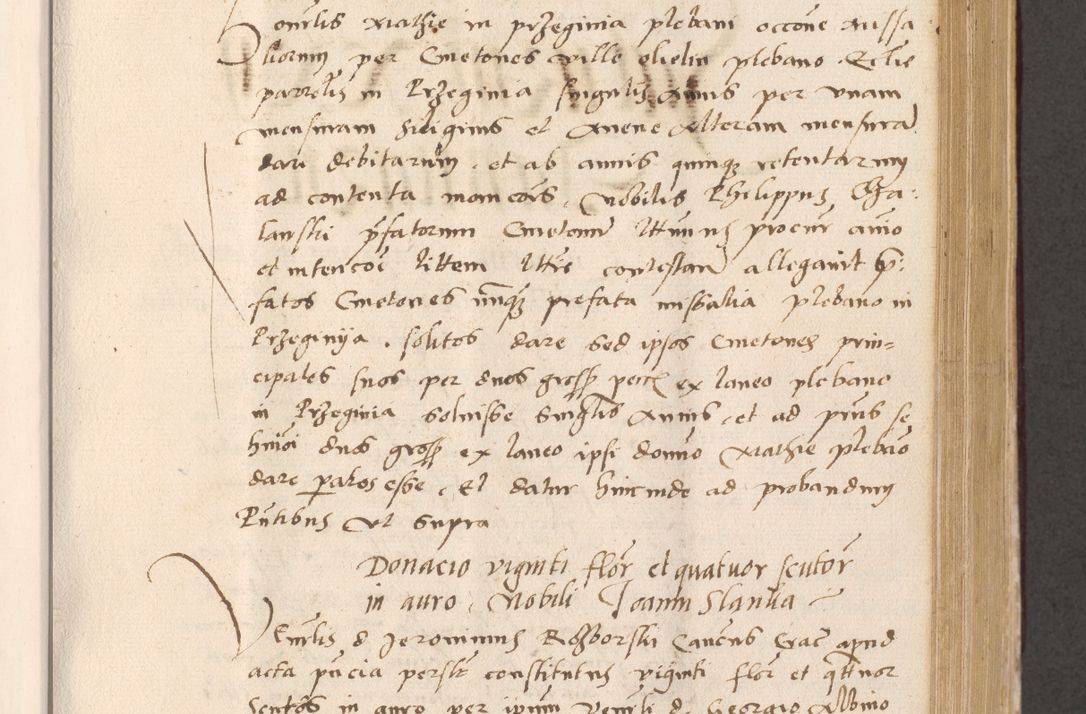 honorlis Mathie in przeginia plebani occone missa
lium per Cmetones ville olelin plebano Eclie
parrolis in Przeginia singulis Annis per vnam
mensuram Siliginis et Auene Alteram mensura
dari debitarum, et ab annis quinq3 retentarum
ad contenta moncois, Nobilis Philippus Cha-
lanski pfatorum Cmetonum procur anno
et intencoe littem lttie contestan allegauit p-
fatos Cmetones nunq3 prefata missalia plebano in
Przeginija solitos dare sed ipsos Cmetones prin=
cipales suos per duos gross ex laneo plebano
in Przeginia soluisse singlis Annis, et ad prns se
hmoi duos gross ex laneo ipsi domno Mathie plebano
dare paltos esse, Et datur hincinde ad probandum
Pntibus vt supra
Donacio viginti flor et quatuor scutor
in auro, Nobili Joanni Slanka
Venrlis d Jeronimus Rozborski Cancus Crac apud
acta pncia persolr constitutus viginti flor et qttuor
Scutos in auro per ipsum Venrli d. Georgio Albino